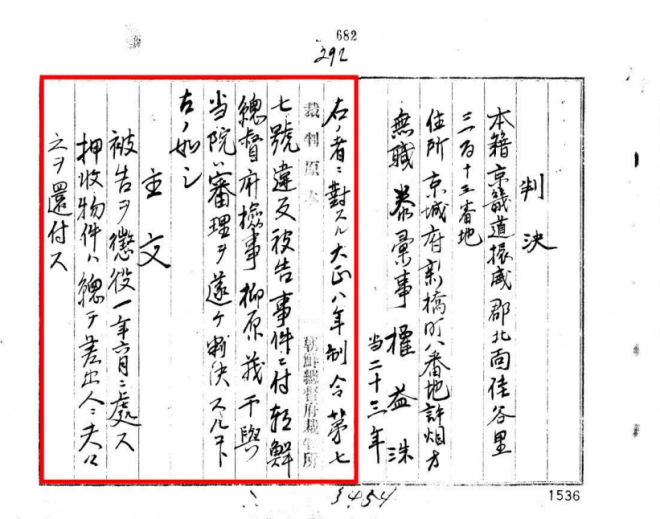 682
292
判決
本籍京畿道振威郡北面佳谷里
三百十三番地
住所京城府新橋町八番地許烟方
無職 彙事 權益洙
当二十三年
右ノ者ニ對スル大正八年制令第七
裁判原本
朝鮮總督府裁判所
七號違反被告事件ニ付朝鮮
總督府檢事柳原茂干與
当院ハ審理ヲ遂ケ判決スルコト
左ノ如シ
主文
被告ヲ懲役一年六月ニ處ス
押收物件ハ總テ差出人ニ夫々
之ヲ還付ス
1536